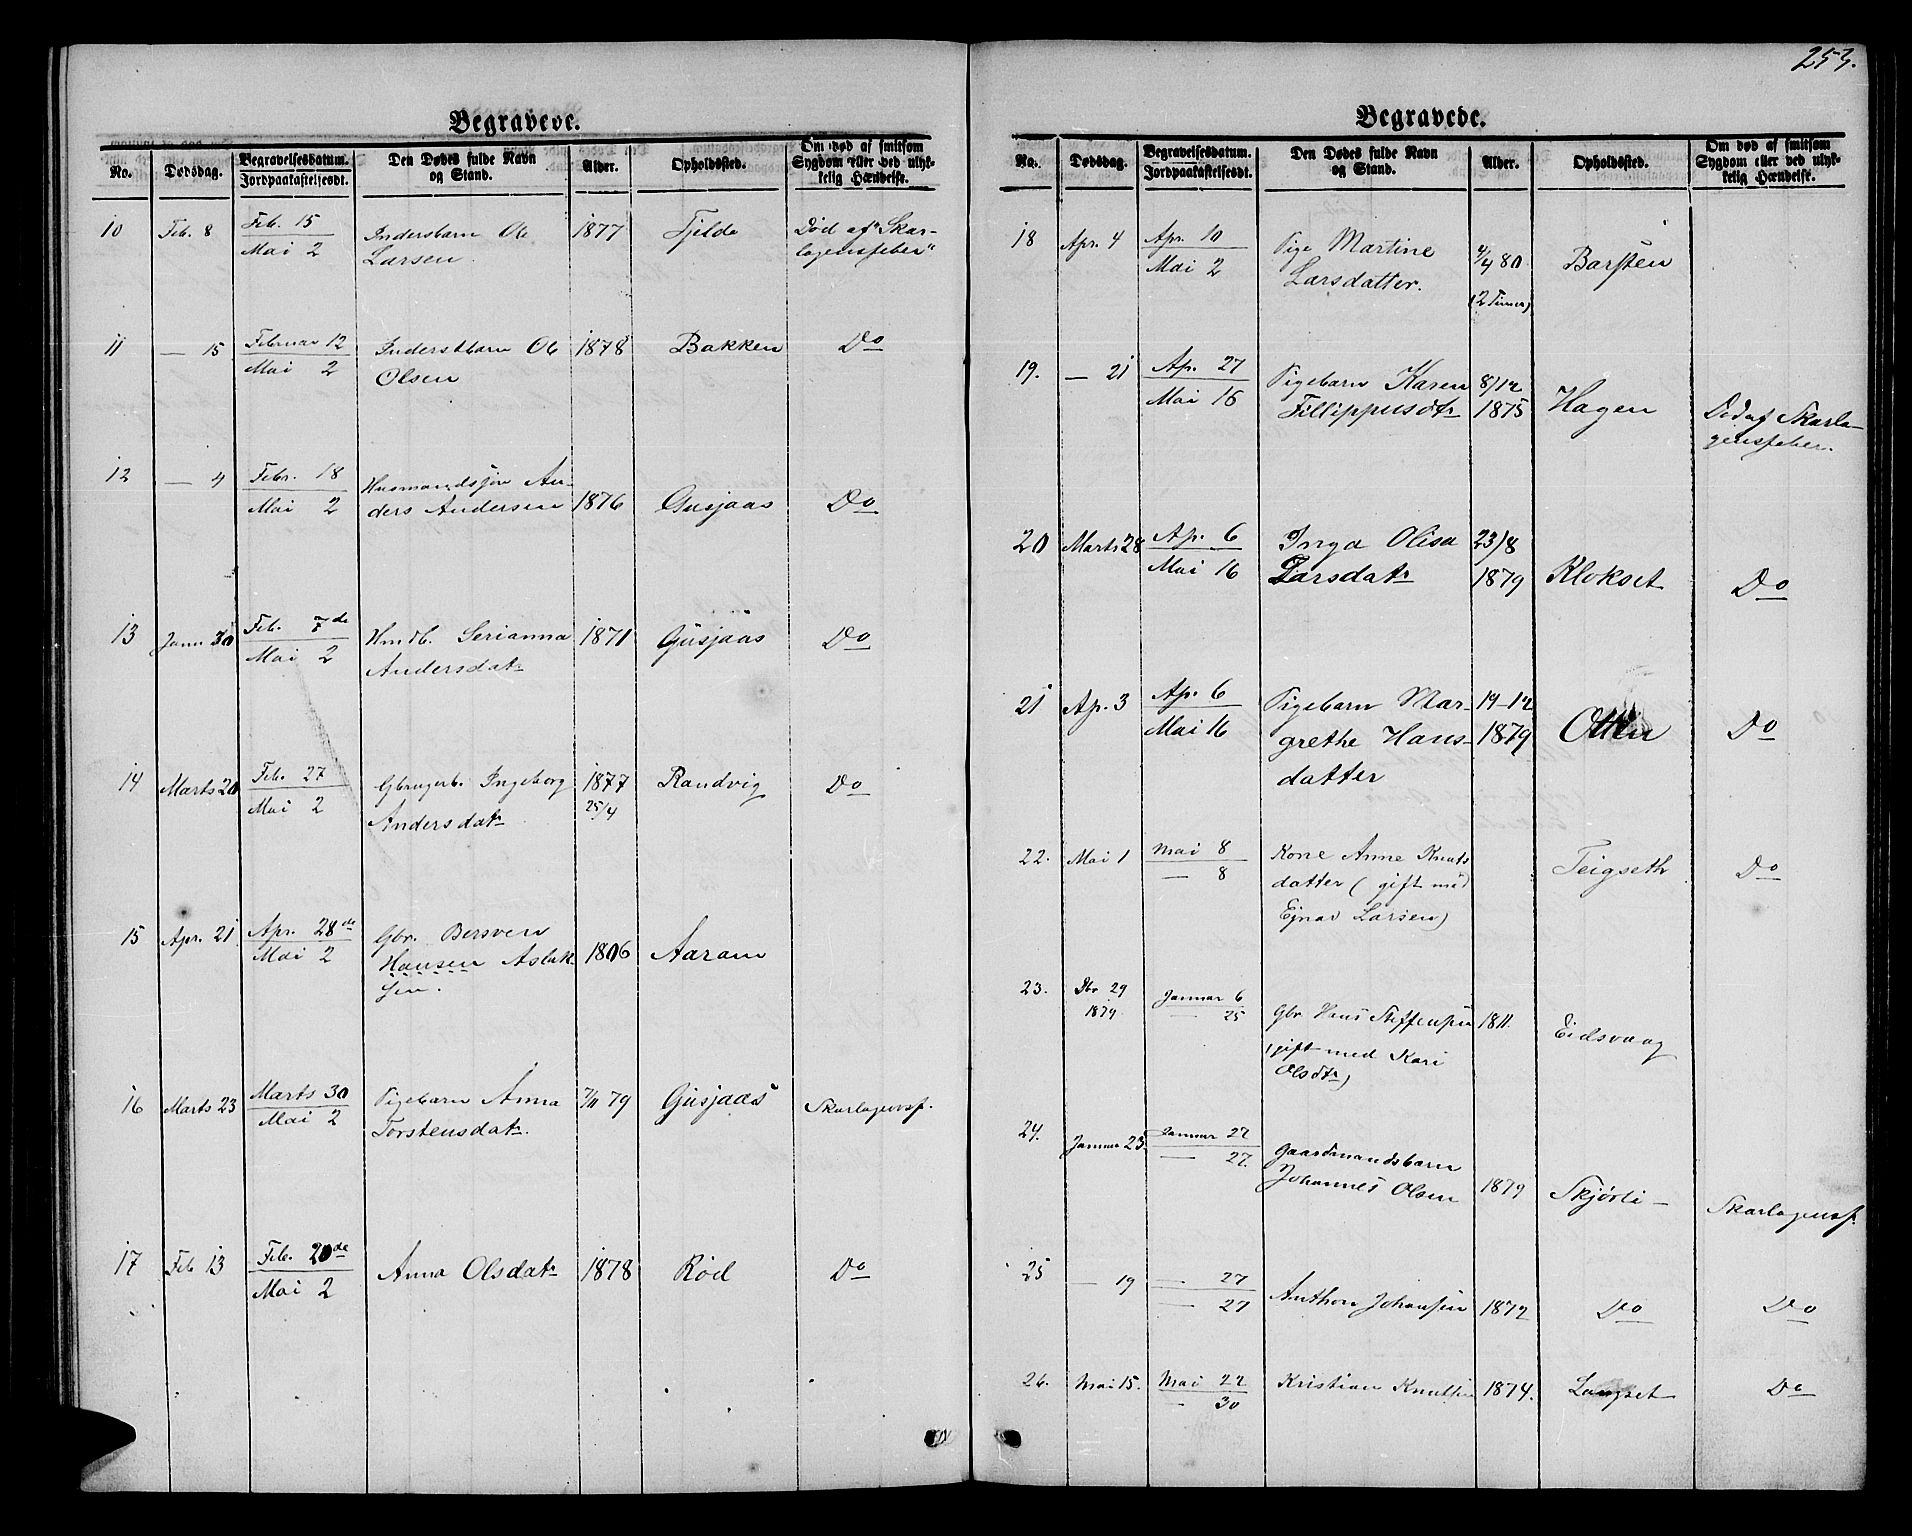 253.
Begravede.
No.
Dødsdag.
Begravelsesdatum.
Jordpaakastelsesdt.
Den Dødes fulde Navn
og Stand.
Alder.
Opholdssted.
Om død af smitsom
Sygdom eller ved ulyk-
kelig Hændelse.
10 Feb. 8 Feb. 15 1877 Tjelde Død af "Skar-
Mai 2 Inderstbarn Ole lagensfeber"
Larsen
11 — 15 Februar 12 Inderstbarn Ole 1878 Bakken Do
Mai 2 Olsen
12 — 4 Febr. 18 Husmandssøn An-
Mai 2 ders Andersen 1876 Gusjaas Do
13 Janu 30 Feb. 7de Hmdb. Serianna 1871 Gusjaas Do
Mai 2 Andersdatr
14 Marts 20 Feb. 27 Gbrugerb. Ingeborg 1877 Randvig Do
Mai 2 Andersdatr 25/4
15 Apr. 21 Apr. 28de Gbr. Bersven
Mai 2 Hansen Aslak- 1806 Aaram
sen.
16 Marts 23 Marts 30 Pigebarn Anna 7/11 79 Gusjaas Skarlagensf.
Mai 2 Torstensdatr
17 Feb 13 Feb. 20de Anna Olsdatr 1878 Rød Do
Mai 2
Begravede.
No.
Dødsdag.
Begravelsesdatum.
Jordpaakastelsesdt.
Den Dødes fulde Navn
og Stand.
Alder.
Opholdssted.
Om død af smitsom
Sygdom eller ved ulyk-
kelig Hændelse.
18 Apr. 4 Apr. 10 Pige Martine 4/4 80 Barsten
Mai 2 Larsdatter. (2 Timer)
19. — 21 Ap. 27 Pigebarn Karen 8/12
Mai 16 Fillippusdtr 1875 Hagen Død af Skarla-
gensfeber.
20 Marts 28 Ap. 6 Inga Olisa 23/8
Mai 16 Larsdatr 1879 Klokset Do
21 Ap. 3 Ap. 6 Pigebarn Mar- 19-12
Mai 16 grethe Hans- 1879 Do
datter
22. Mai 1 Mai 8 Kone Anne Knuts Teigseth Do
— 8 datter (gift med
Ejnar Larsen)
23. Dbr 29 Januar 6
1879. — 25 Gbr Hans Steffensen 1811. Eidsvaag
(gift med Kari
Olsdtr)
24. Januar 23. Januar 27 Gaardmandsbarn
— 27. Johannes Olsen 1879 Skjørli — Skarlagensf.
25 — 19 — 27 Anthon Johansen 1872 Do Do
— 27
26. Mai 15. Mai 22 Kristian Knutsen 1874. Langset Do
— 30